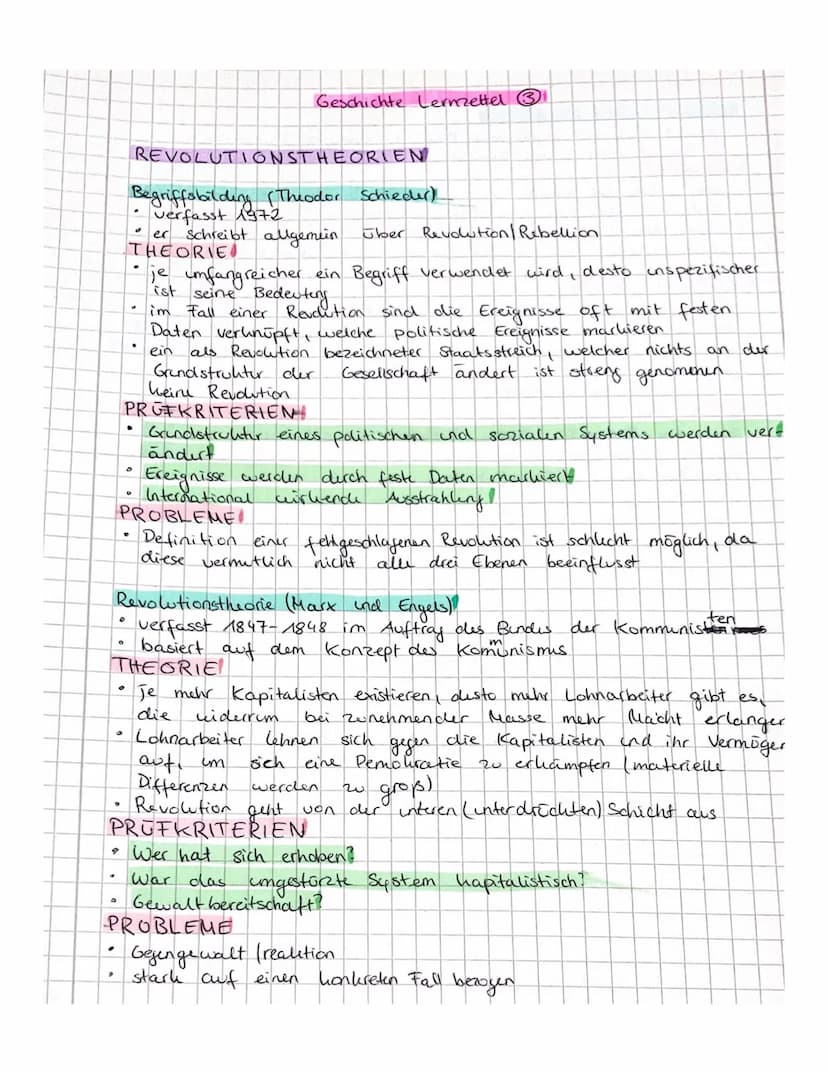 Geschichte Lernzettel ③
REVOLUTIONSTHEORIEN
Begriffsbildung (Theodor Schieder)
• verfasst 1972
• er schreibt allgemein über Revolution/Rebellion
THEORIE
• je umfangreicher ein Begriff verwendet wird, desto unspezifischer
ist seine Bedeutung
• im Fall einer Revolution sind die Ereignisse oft mit festen
Daten verknüpft, welche politische Ereignisse markieren
• ein als Revolution bezeichneter Staatsstreich, welcher nichts an der
Grundstruktur der Gesellschaft ändert ist streng genommen
keine Revolution
PRÜFKRITERIEN
• Grundstruktur eines politischen und sozialen Systems werden ver-
ändert
• Ereignisse werden durch feste Daten markiert
• International wirkende Ausstrahlung
PROBLEME
• Definition einer fehlgeschlagenen Revolution ist schlecht möglich, da
diese vermutlich nicht alle drei Ebenen beeinflusst
Revolutionstheorie (Marx und Engels)
• verfasst 1847-1848 im Auftrag des Bundes der Kommunisten
• basiert auf dem Konzept des Kommunismus
THEORIE
• Je mehr Kapitalisten existieren, desto mehr Lohnarbeiter gibt es,
die widerrum bei zunehmender Masse mehr Macht erlangen
• Lohnarbeiter lehnen sich gegen die Kapitalisten und ihr Vermögen
auf, um sich eine Demokratie zu erkämpfen (materielle
Differenzen werden zu groß)
• Revolution geht von der unteren (unterdrückten) Schicht aus
PRÜFKRITERIEN
• Wer hat sich erhoben?
• War das umgestürzte System kapitalistisch?
• Gewaltbereitschaft?
PROBLEME
• Gegengewalt /reaktion
• stark auf einen konkreten Fall bezogen